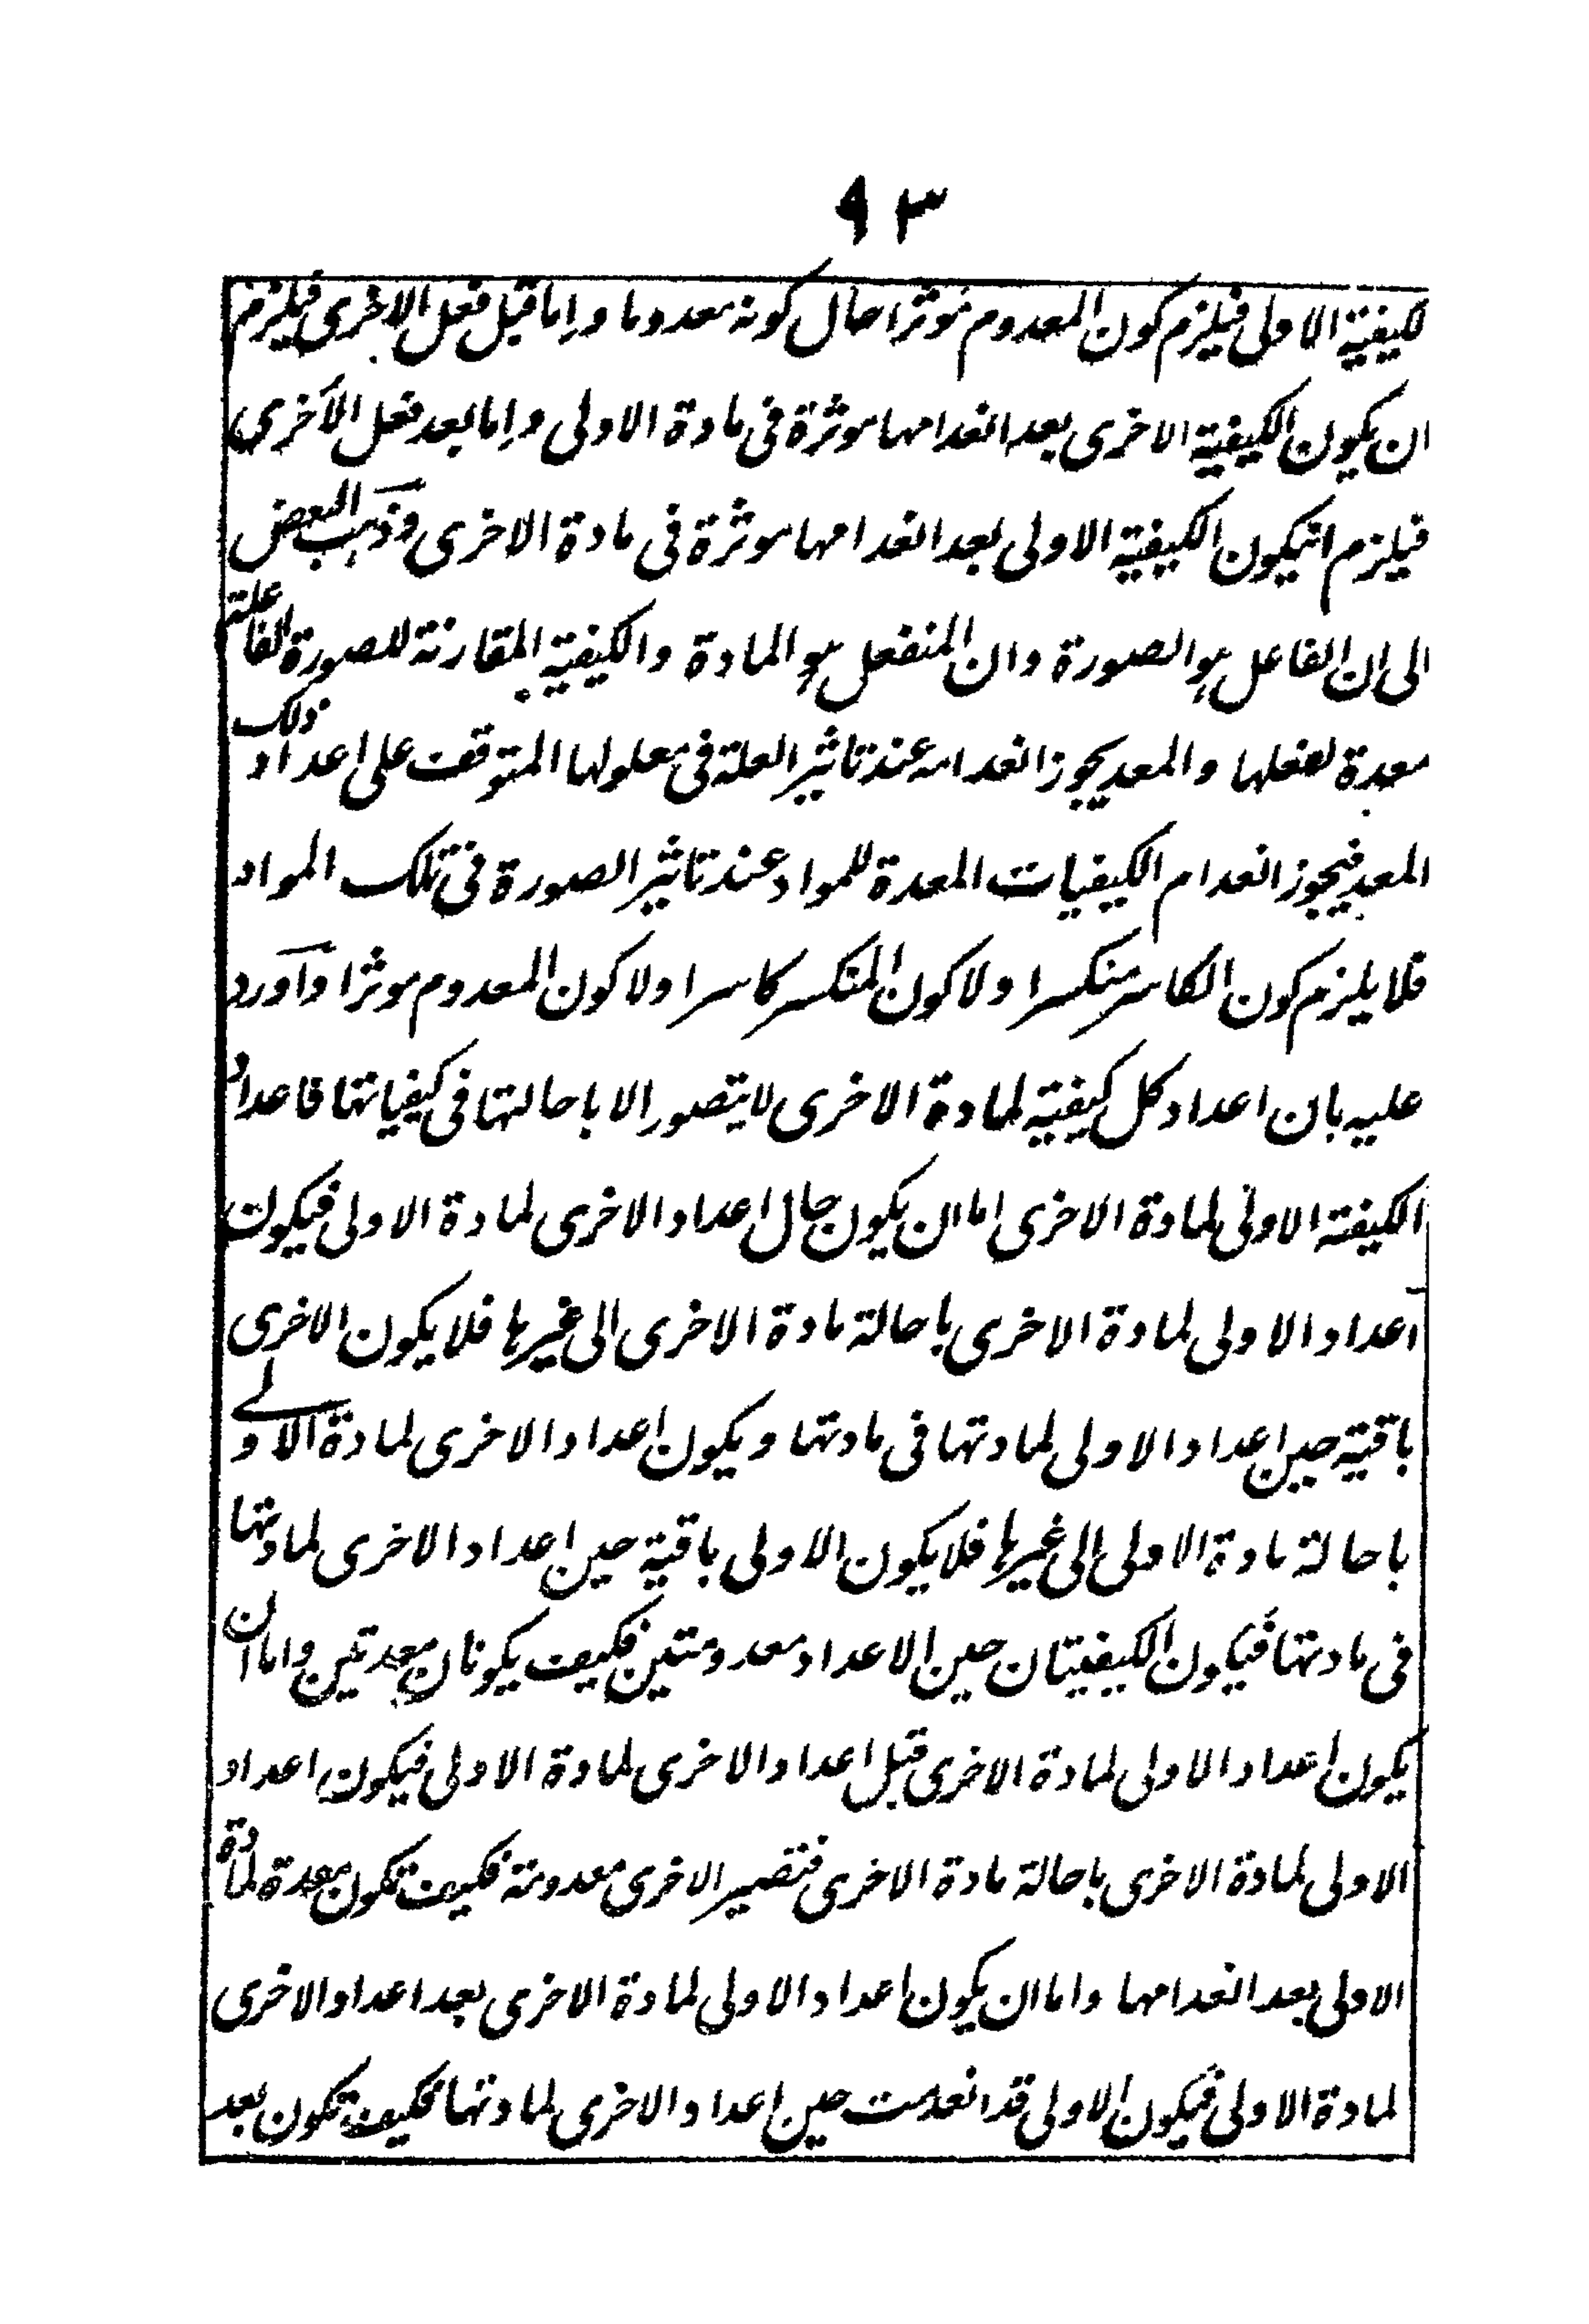 ٩٣
لكيفية الاولى فيلزم كون المعدوم موثرا حال كونه معدوما واما قبل فعل الاخرى فيلزم
ان يكون الكيفية الاخرى بعد انعدامها موثرة فى مادة الاولى واما بعد فعل الاخرى
فيلزم انيكون الكيفية الاولى بعد انعدامها موثرة فى مادة الاخرى وذهب البعض
الى ان الفاعل هو الصورة وان المنفعل هو المادة والكيفية المقارنة للصورة الفاعلة
معدة لفعلها والمعد يجوز انعدامه عند تاثير العلة فى معلولها المتوقف على اعداد ذلك
المعد فيجوز انعدام الكيفيات المعدة للمواد عند تاثير الصورة فى تلك المواد
فلا يلزم كون الكاسر منكسرا ولا كون المنكسر كاسرا ولا كون المعدوم موثرا واورد
عليه بان اعداد كل كيفية لمادة الاخرى لا يتصور الا باحالتها فى كيفياتها فاعداد
الكيفة الاولى لمادة الاخرى اما ان يكون حال اعداد الاخرى لمادة الاولى فيكون
اعداد الاولى لمادة الاخرى باحالة مادة الاخرى الى غيرها فلا يكون الاخرى
باقية حين اعداد الاولى لمادتها فى مادتها ويكون اعداد الاخرى لمادة الاولے
باحالة مادة الاولى الى غيرها فلا يكون الاولى باقية حين اعداد الاخرى لمادتها
فى مادتها فيكون الكيفيتان حين الاعداد معدومتين فكيف يكونان معدتين واما ان
يكون اعداد الاولى لمادة الاخرى قبل اعداد الاخرى لمادة الاولى فيكون اعداد
الاولى لمادة الاخرى باحالة مادة الاخرى فتصير الاخرى معدومة فكيف تكون معدة لمادة
الاولى بعد انعدامها واما ان يكون اعداد الاولى لمادة الاخرى بعد اعداد الاخرى
لمادة الاولى فيكون الاولى قد انعدمت حين اعداد الاخرى لمادتها فكيف تكون بعد